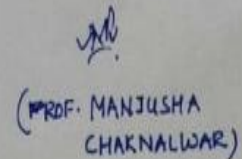 (PROF. MANJUSHA
CHAKNALWAR)